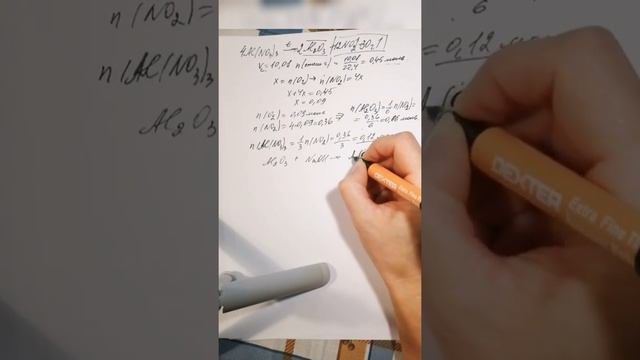 4Al(NO3)3 t→ 2Al2O3 + 12NO2↑ + 3O2↑
V = 10,08 n(смеси) = 10,08/22,4 = 0,45 моль
x = n(O2) → n(NO2) = 4x
x+4x = 0,45
x = 0,09
n(O2) = 0,09 моль
n(NO2) = 4·0,09 = 0,36 ⇒ n(Al2O3) = 1/6 n(NO2) =
= 0,36/6 = 0,06 моль
n(Al(NO3)3 = 1/3 n(NO2) = 0,36/3 = 0,12
Al2O3 + NaOH →
DEXTER Extra Fine